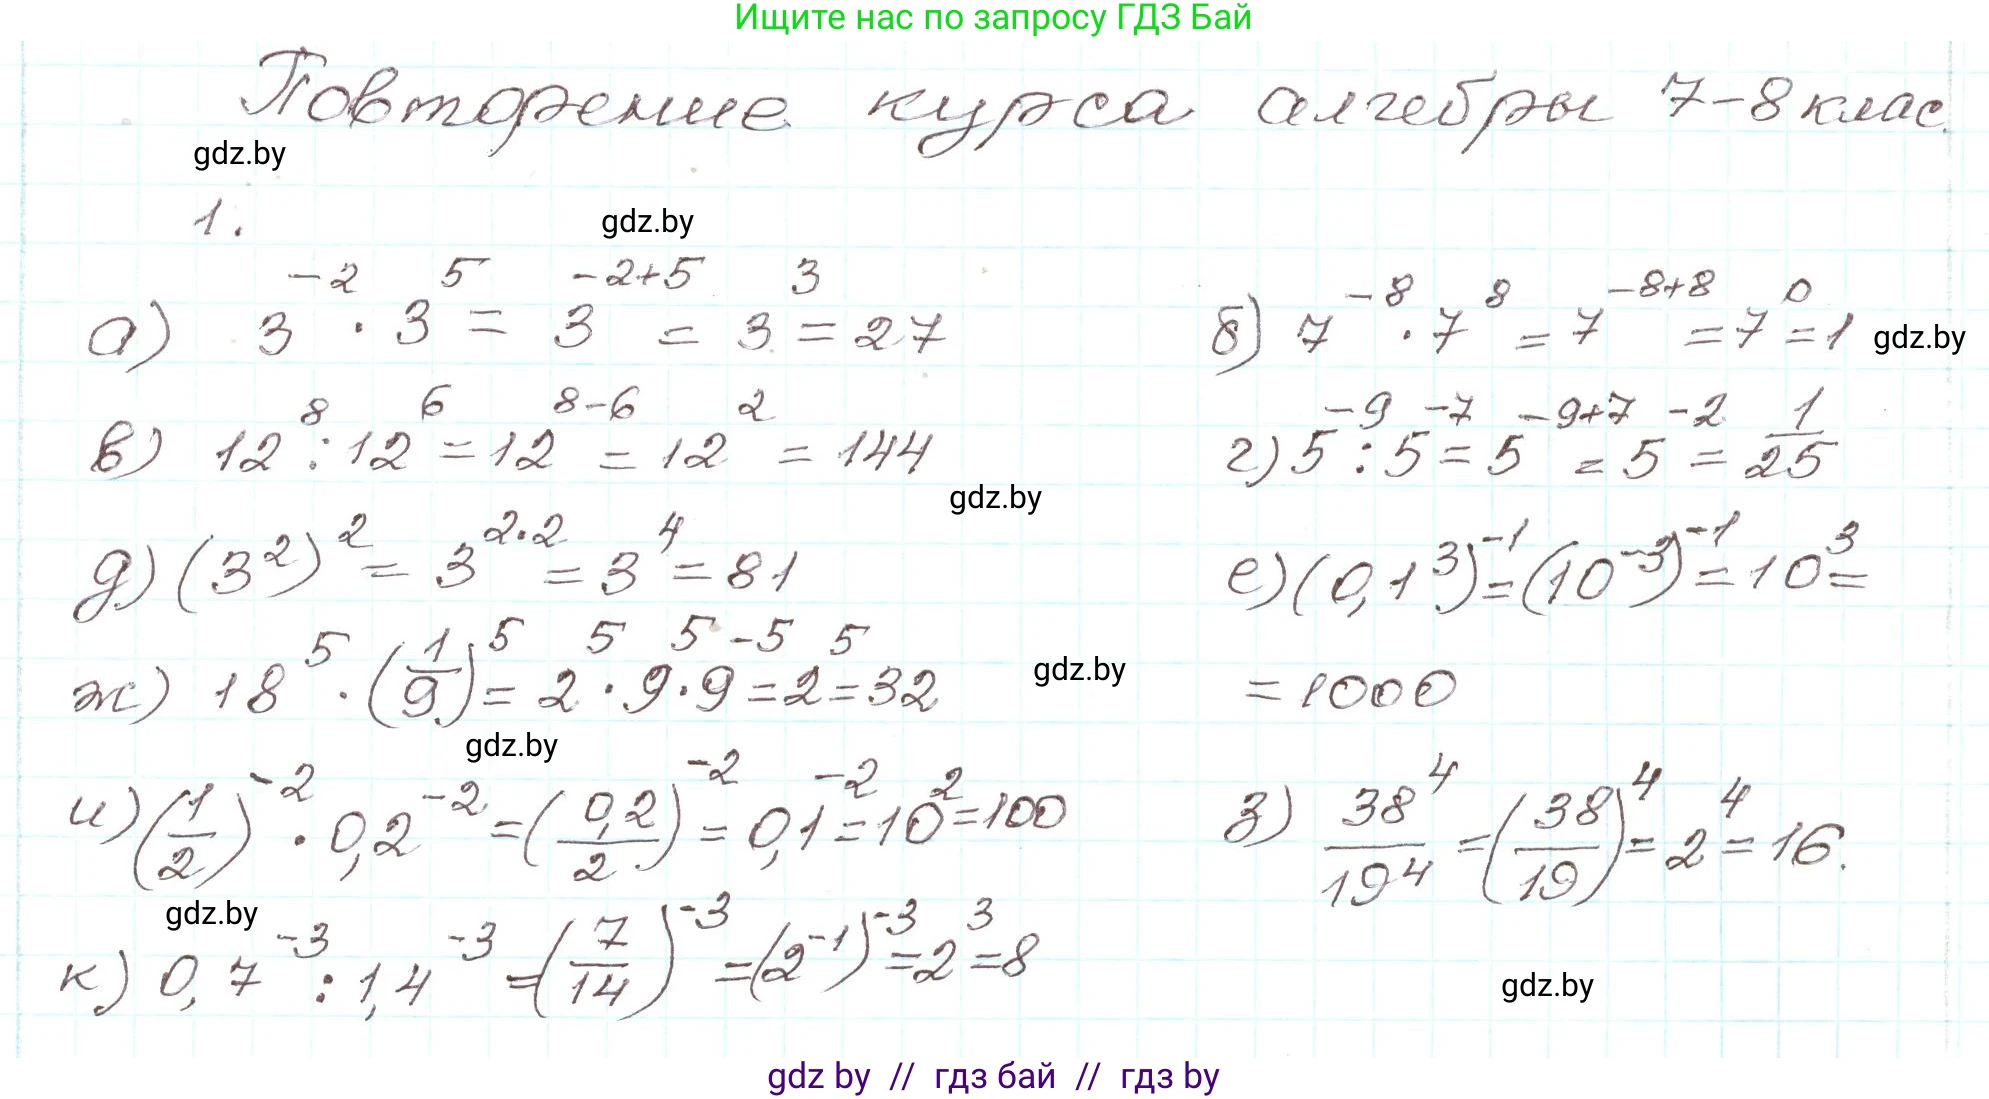 Ищите нас по запросу ГДЗ Бай
Повторение курса алгебры 7-8 клас.
gdz.by
1.
gdz.by
а) 3⁻² · 3⁵ = 3⁻²⁺⁵ = 3³ = 27
б) 7⁻⁸ · 7⁸ = 7⁻⁸⁺⁸ = 7⁰ = 1
gdz.by
в) 12⁸ : 12⁶ = 12⁸⁻⁶ = 12² = 144
г) 5⁻⁹ : 5⁻⁷ = 5⁻⁹⁺⁷ = 5⁻² = 1/25
gdz.by
д) (3²)² = 3²·² = 3⁴ = 81
е) (0,1³)⁻¹ = (10⁻³)⁻¹ = 10³ =
= 1000
ж) 18⁵ · (1/9)⁵ = 2⁵ · 9⁵ · 9⁻⁵ = 2⁵ = 32
gdz.by
gdz.by
и) (1/2)⁻² · 0,2⁻² = (0,2/2)⁻² = 0,1⁻² = 10² = 100
з) 38⁴/19⁴ = (38/19)⁴ = 2⁴ = 16.
gdz.by
к) 0,7⁻³ : 1,4⁻³ = (7/14)⁻³ = (2⁻¹)⁻³ = 2³ = 8
gdz.by
gdz by // гдз бай // гдз by